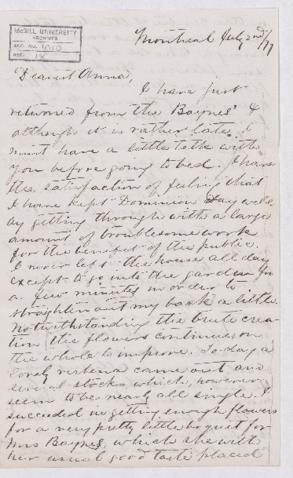 McGILL UNIVERSITY
ARCHIVES
ACC. NO. 1010
REF.
Montreal July 2nd/77
Dearest Anna,
I have just
returned from the Baynes' &
although it is rather late, I
must have a little talk with
you before going to bed. I have
the satisfaction of feeling that
I have kept Dominion Day well
by getting through with a large
amount of troublesome work
for the benefit of the public.
I never left the house all day
except to go into the garden for
a few minutes in order to
straighten out my back a little.
Notwithstanding the brute crea-
tion the flowers continue on
the whole to improve. To-day a
lovely verbena came out and
several stocks which, however
seem to be nearly all single. I
succeeded in getting enough flowers
for a very pretty little boquet for
Mrs Baynes, which she with
her usual good taste placed